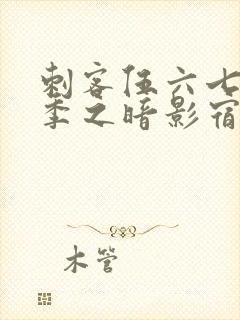 刺客伍六七
季之暗影宿
木管